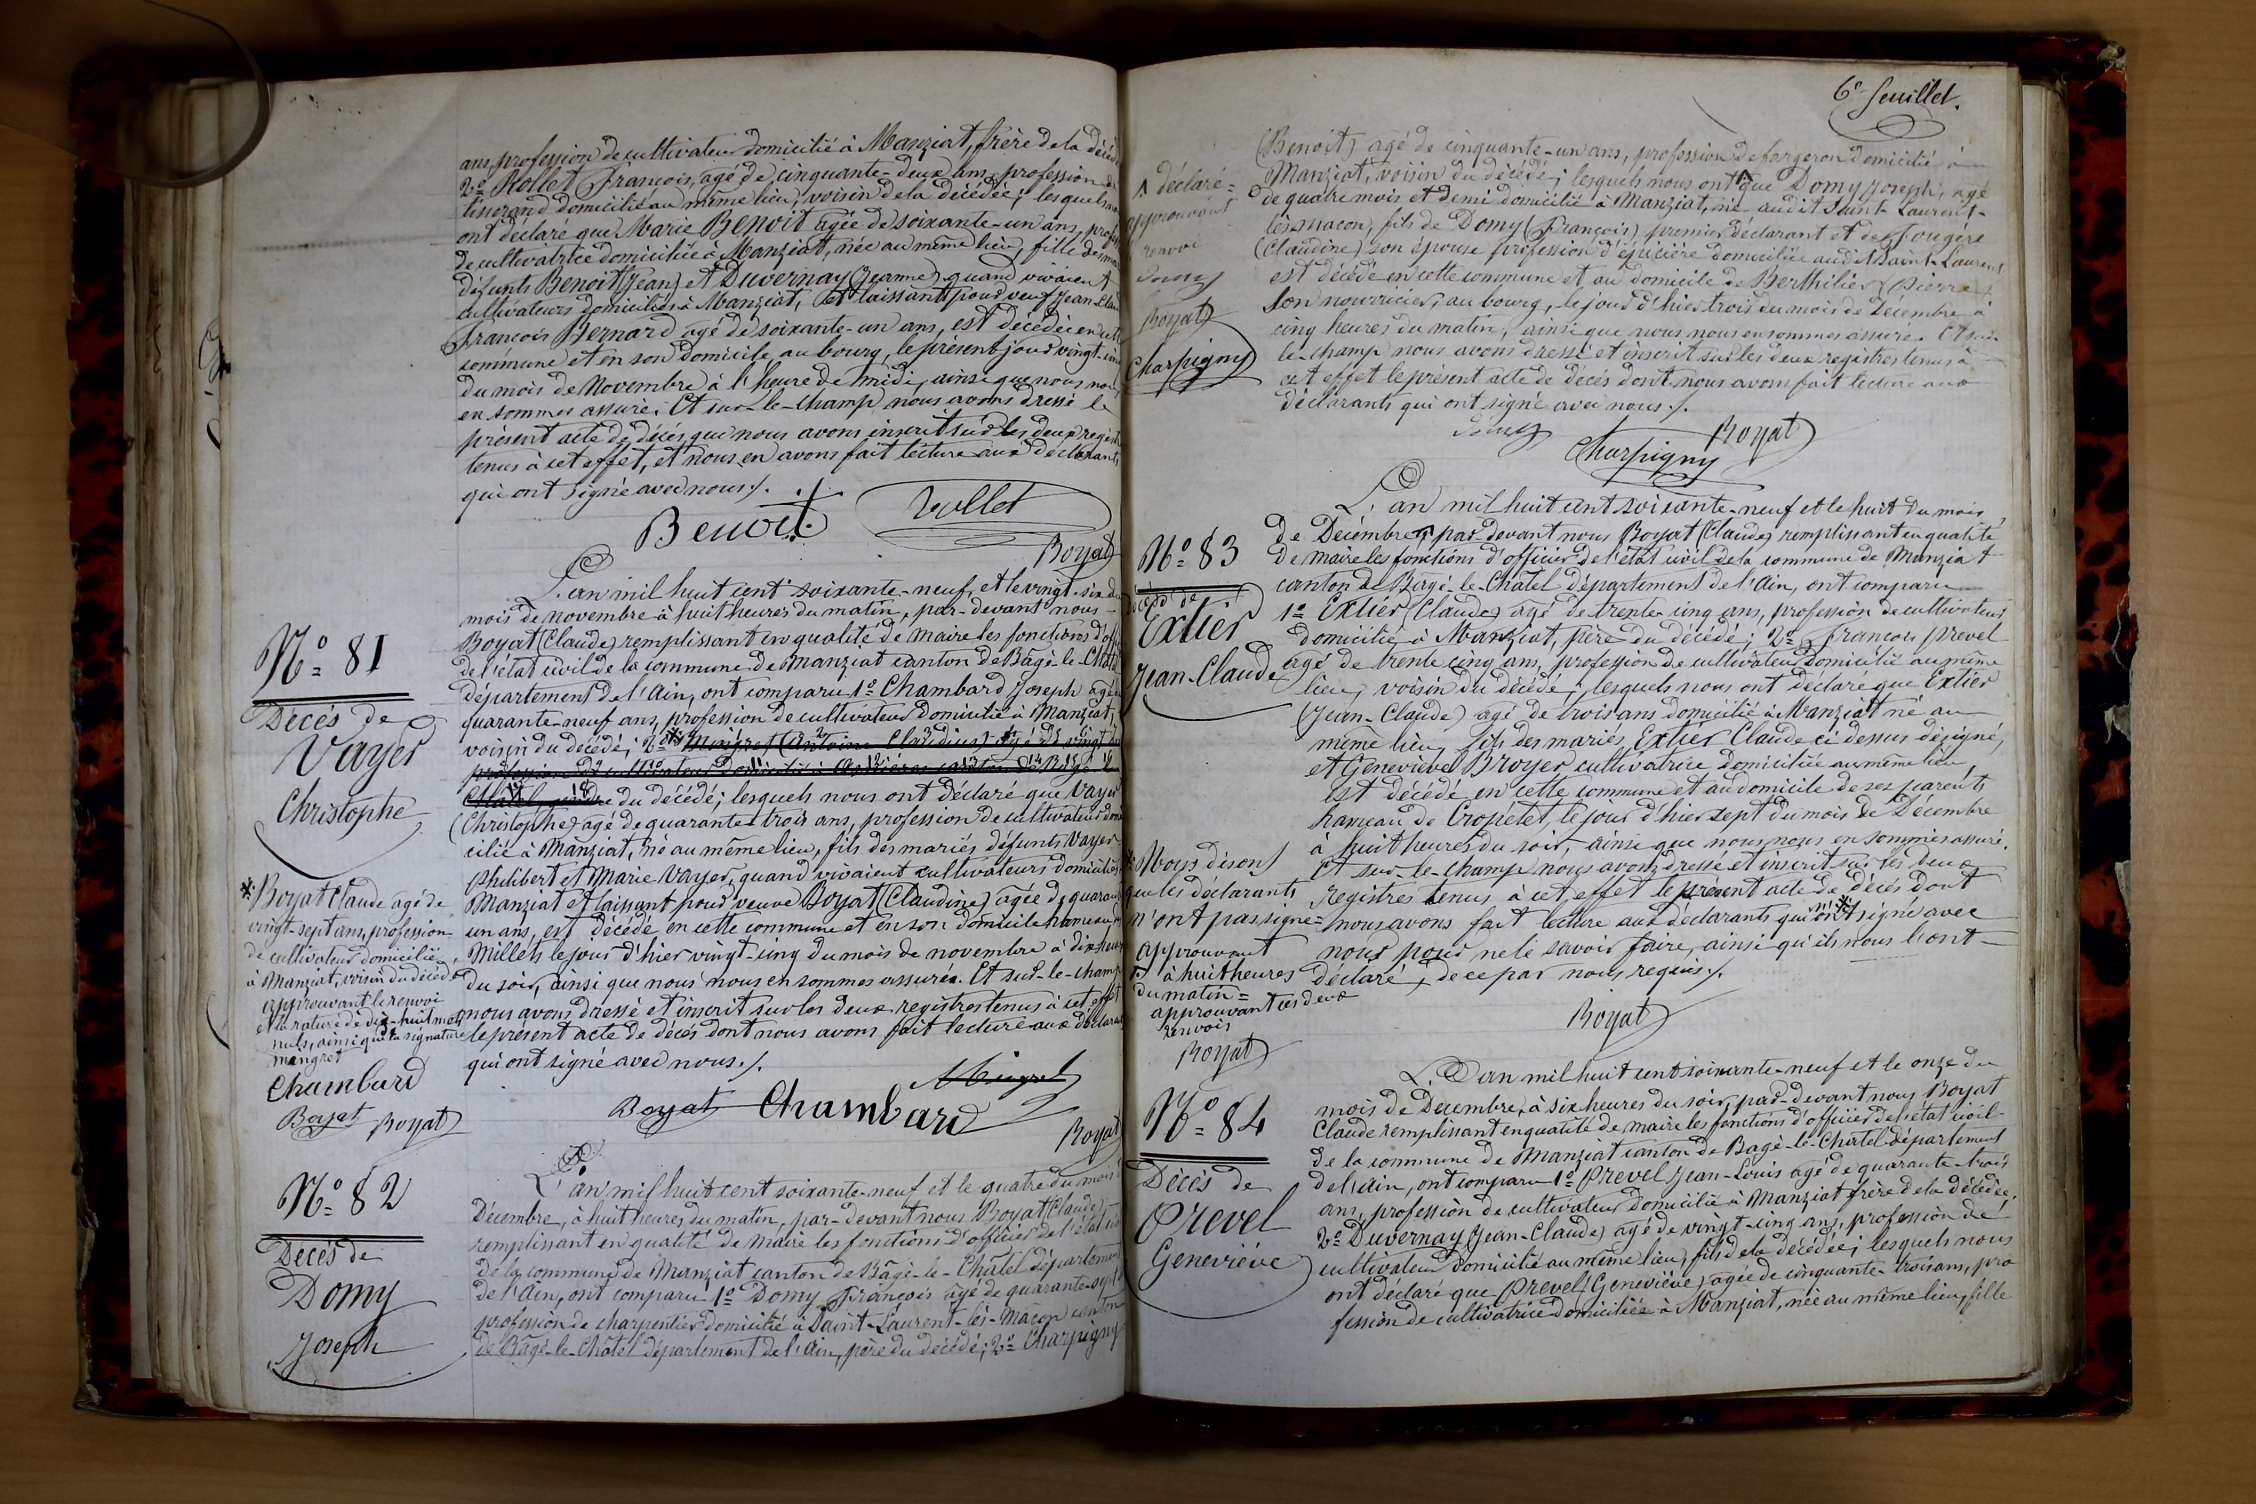 ans, profession de cultivateur domicilié à Manziat, frère de la décédé
2º Rollet François, agé de cinquante-deux ans, profession de
tisserand domicilié au même lieu, voisin de la décédée; lesquels
ont déclaré que Marie Benoit agée de soixante-un ans, profess
de cultivatrice domiciliée à Manziat, née au même lieu, fille des
défunts Benoit (Jean) et Duvernay (Jeanne) quand vivaient
cultivateurs domiciliés à Manziat, et laissant pour veuf Jean-Clau
François Bernard agé de soixante-un ans, est décédée en cette
commune et en son domicile, au bourg, le présent jour vingt-cinq
du mois de Novembre à l'heure de midi, ainsi que nous nous
en sommes assuré. Et sur-le-champ nous avons dressé le
présent acte de décès que nous avons inscrit sur les deux regist
tenus à cet effet, et nous en avons fait lecture aux déclarants
qui ont signé avec nous./.
Benoit Rollet
Boyat
Nº 81
Décès de
Vayer
Christophe
L'an mil huit cent soixante-neuf, et le vingt-six du
mois de novembre à huit heures du matin, par-devant nous
Boyat (Claude) remplissant en qualité de maire les fonctions d'off
de l'état civil de la commune de Manziat canton de Bâgé-le-Châtel
département de l'Ain, ont comparu 1º Chambard Joseph agé de
quarante-neuf ans, profession de cultivateur domicilié à Manziat,
voisin du décédé; 2º * Maigret (Antoine Claudius) agé de vingt
profession de cultivateur domicilié à Asnières canton de Bâgé le
Châtel, gendre du décédé; lesquels nous ont déclaré que Vayer
(Christophe) agé de quarante-trois ans, profession de cultivateur domi
cilié à Manziat, né au même lieu, fils des mariés défunts Vayer
Philibert et Marie Vayer, quand vivaient cultivateurs domiciliés
Manziat et laissant pour veuve Boyat (Claudine) agée de quarante
un ans, est décédé en cette commune et en son domicile hameau
Millets le jour d'hier vingt-cinq du mois de novembre à dix heures
du soir, ainsi que nous nous en sommes assurés. Et sur-le-champ
nous avons dressé et inscrit sur les deux registres tenus à cet effet
le présent acte de décès dont nous avons fait lecture aux déclarants
qui ont signé avec nous./.
* Boyat Claude agé de
vingt-sept ans, profession
de cultivateur domicilié
à Manziat, voisin du décédé
approuvant le renvoi
et la rature de dix-huit mots
nuls, ainsi que la signature
maigret
Chambard
Boyat Boyat
Maigret
Boyat Chambard
Boyat
Nº 82
Décès de
Domy
Joseph
L'an mil huit cent soixante-neuf et le quatre du mois
Décembre, à huit heures du matin, par-devant nous Boyat (Claude)
remplissant en qualité de maire les fonctions d'officier de l'état civil
de la commune de Manziat canton de Bâgé-le-Châtel département
de l'Ain, ont comparu 1º Domy François agé de quarante-sept
profession de charpentier domicilié à Saint-Laurent-lès-Mâcon canton
de Bâgé-le-Châtel département de l'Ain, père du décédé; 2º Charpigny
6e feuillet.
(Benoit) agé de cinquante-un ans, profession de forgeron domicilié à
Manziat, voisin du décédé; lesquels nous ont ^ que Domy Joseph, agé
de quatre mois et demi domicilié à Manziat, né audit Saint-Laurent-
lès-Macon, fils de Domy (François) premier déclarant et de Fougère
(Claudine) son épouse profession d'épicière domiciliée audit Saint-Laurent
est décédé en cette commune et au domicile de Berthilier Pierre
son nourricier, au bourg, le jour d'hier trois du mois de Décembre à
cinq heures du matin, ainsi que nous nous en sommes assuré. Et sur-
le-champ nous avons dressé et inscrit sur les deux registres tenus à
cet effet le présent acte de décès dont nous avons fait lecture aux
déclarants qui ont signé avec nous./.
^ déclaré =
approuvant
renvoi
Domy
Boyat
Charpigny
Domy Charpigny Boyat
Nº 83
Décès de
Extier
Jean-Claude
L'an mil huit cent soixante-neuf et le huit du mois
de Décembre, par devant nous Boyat (Claude) remplissant en qualité
de maire les fonctions d'officier de l'état civil de la commune de Manziat
canton de Bagé-le-Chatel département de l'Ain, ont comparu
1º Extier (Claude) agé de trente-cinq ans, profession de cultivateur
domicilié à Manziat, père du décédé; 2º François Prevel
agé de trente cinq ans, profession de cultivateur domicilié au même
lieu, voisin du décédé; lesquels nous ont déclaré que Extier
(Jean-Claude) agé de trois ans domicilié à Manziat né au
même lieu, fils des mariés Extier Claude ci dessus désigné,
et Geneviève Broyer cultivatrice domiciliée au même lieu
est décédé en cette commune et au domicile de ses parents
hameau de Cropétet, le jour d'hier sept du mois de Décembre
à huit heures du soir, ainsi que nous nous en sommes assuré.
Et sur-le-champ nous avons dressé et inscrit sur les deux
registres tenus à cet effet le présent acte de décès dont
nous avons fait lecture aux déclarants qui n'ont * signé avec
nous pour ne le savoir faire, ainsi qu'ils nous l'ont
déclaré, de ce par nous requis./.
* Nous disons
que les déclarants
n'ont pas signé =
approuvant
à huit heures
du matin =
approuvant ces deux
renvois
Boyat
Boyat
Nº 84
Décès de
Prevel
Geneviève
L'an mil huit cent soixante-neuf et le onze du
mois de Decembre, à six heures du soir, par-devant nous Boyat
Claude remplissant en qualité de maire les fonctions d'officier de l'état civil
de la commune de Manziat canton de Bagé-le-Châtel département
de l'Ain, ont comparu 1º Prevel Jean-Louis agé de quarante-trois
ans, profession de cultivateur domicilié à Manziat frère de la décédée,
2º Duvernay (Jean-Claude) agé de vingt-cinq ans, profession de
cultivateur domicilié au même lieu, fils de la décédée; lesquels nous
ont déclaré que Prevel (Geneviève) agée de cinquante-trois ans, pro
fession de cultivatrice domiciliée à Manziat, née au même lieu, fille